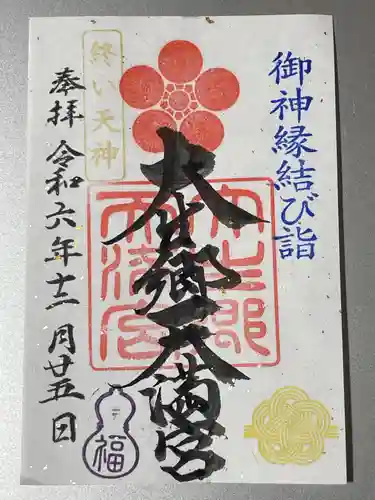 御神縁結び詣
大生郷天満宮
終い天神
奉拝 令和六年十二月廿五日
福